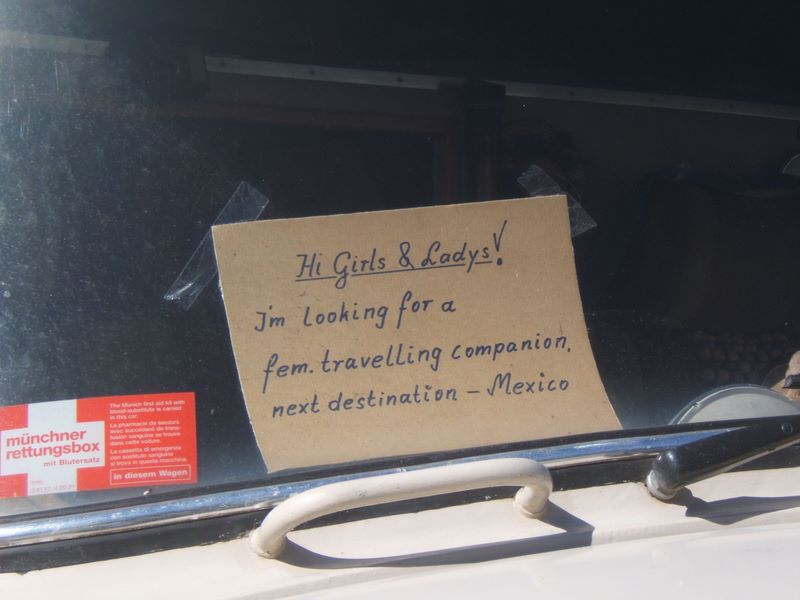 Hi Girls & Ladys!
I'm looking for a
fem. travelling companion.
next destination – Mexico
münchner
rettungsbox
mit Blutersatz
The Munich first aid kit with
blood-substitute is carried
in this car.
La pharmacie de secours
avec succédané de trans-
fusion sanguine se trouve
dans cette voiture.
La cassetta di emergenza
con sostituto sanguino
si trova in questa macchina.
in diesem Wagen